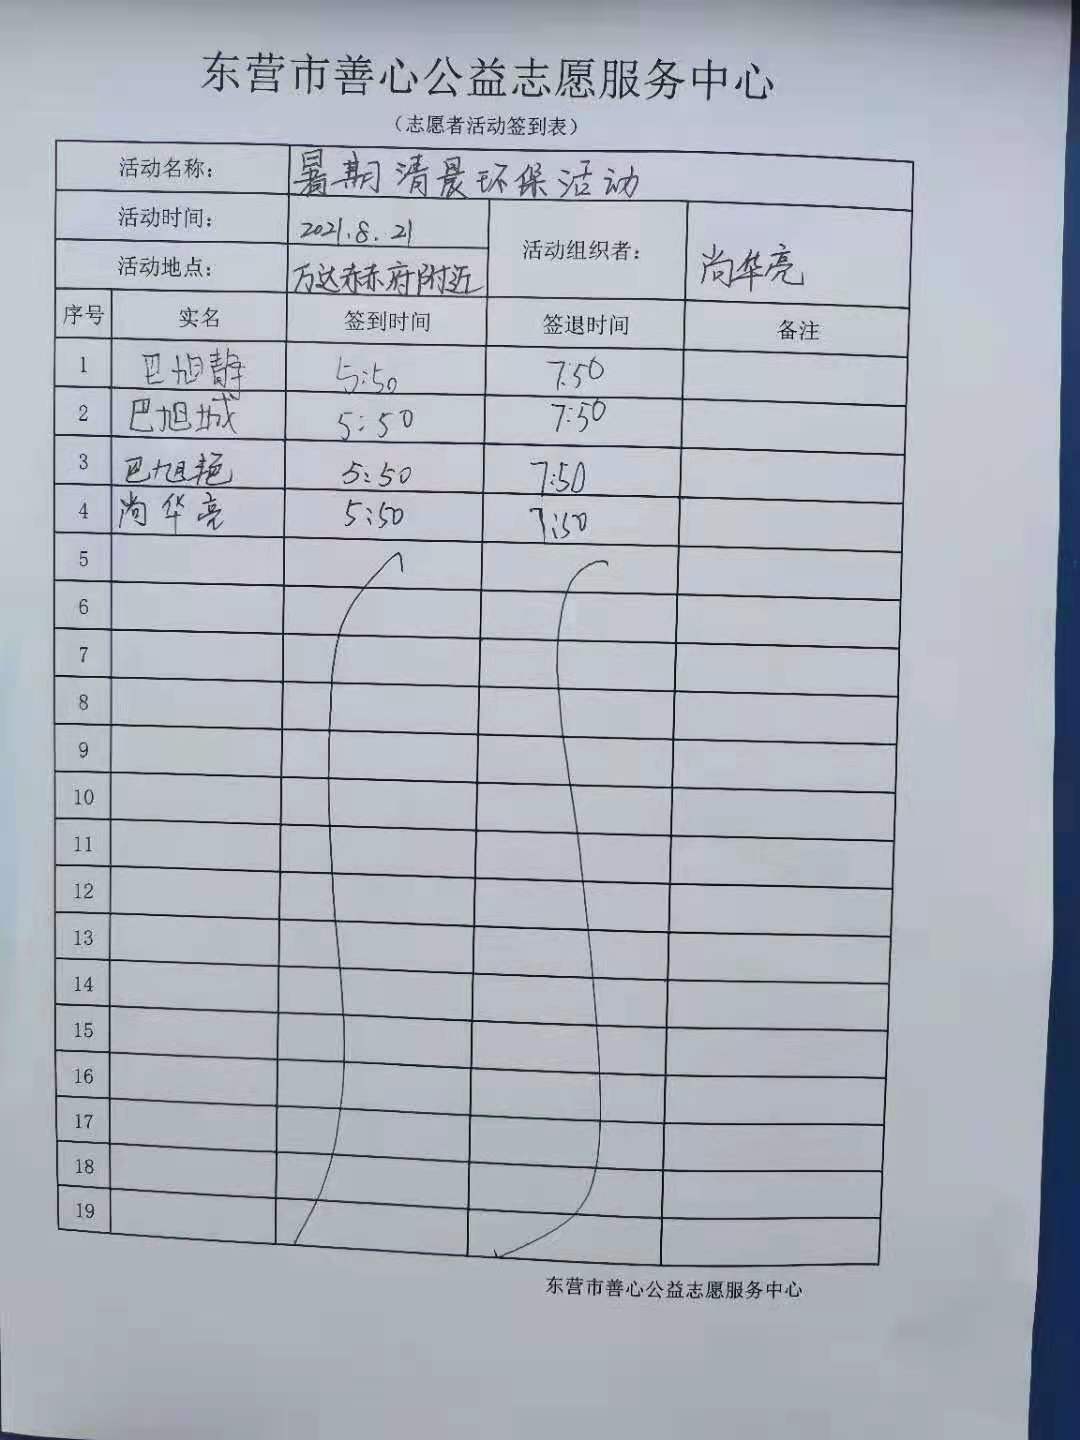 东营市善心公益志愿服务中心
（志愿者活动签到表）
活动名称： 暑期清晨环保活动
活动时间： 2021.8.21 活动组织者： 尚华亮
活动地点： 万达赫赫府附近
序号 实名 签到时间 签退时间 备注
1 巴旭静 5:50 7:50
2 巴旭城 5:50 7:50
3 巴旭艳 5:50 7:50
4 尚华亮 5:50 7:50
5
6
7
8
9
10
11
12
13
14
15
16
17
18
19
东营市善心公益志愿服务中心